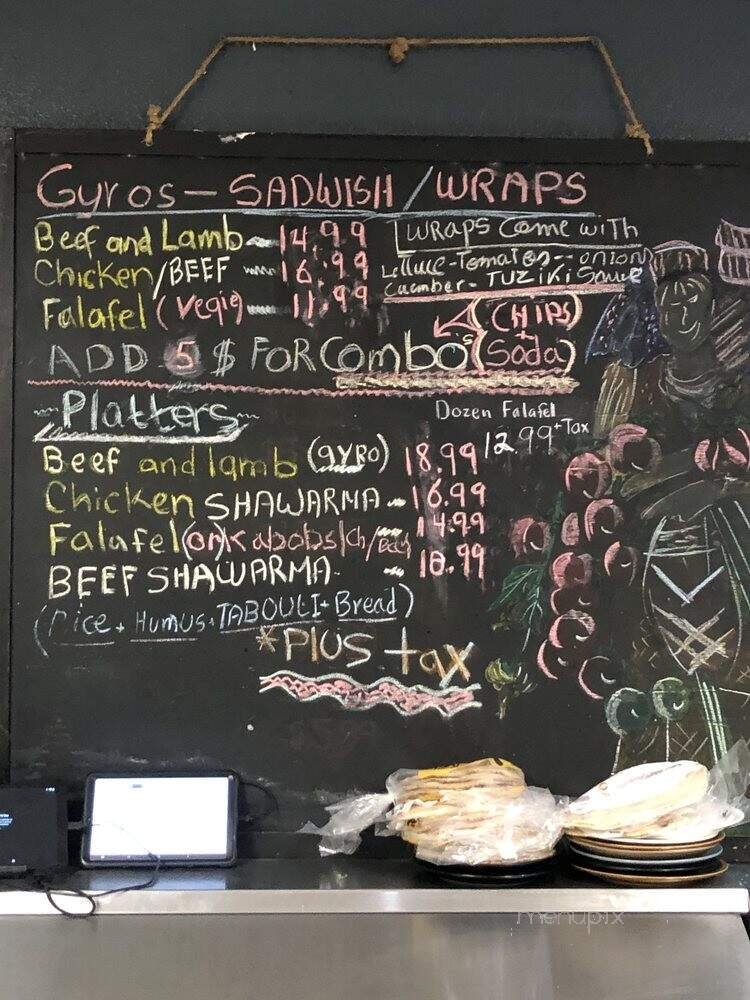 Gyros - SADWISH / WRAPS
Beef and Lamb 14.99
Chicken/BEEF 16.99
Falafel (Vegie) 11.99
WRAPS Come with
Lettuce - Tomatos - onion
Cucmber - TUZiKi Sauce
ADD 5 $ FOR Combo's (CHIPS + Soda)
Platters
Dozen Falafel
12.99 + Tax
Beef and lamb (gyro) 18.99
Chicken SHAWARMA 16.99
Falafel (or) Kabobs Ch/Beef 14.99
BEEF SHAWARMA 18.99
(Rice + Humus + TABOULI + Bread)
*PLUS tax
menupix